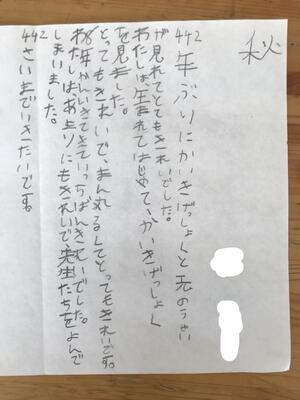 秋
442年ぶりにかいきげっしょくと天のうせい
が見れてとてもきれいでした。
わたしは、生まれてはじめて、かいきげっしょく
を見ました。
とってもきれいで、まん丸くてとってもきれいです。
8年かんいきてきていっちばんきれいでした。
わたしは、あまりにもきれいで先生たちをよんで
しまいました。
442さいまでいきたいです。